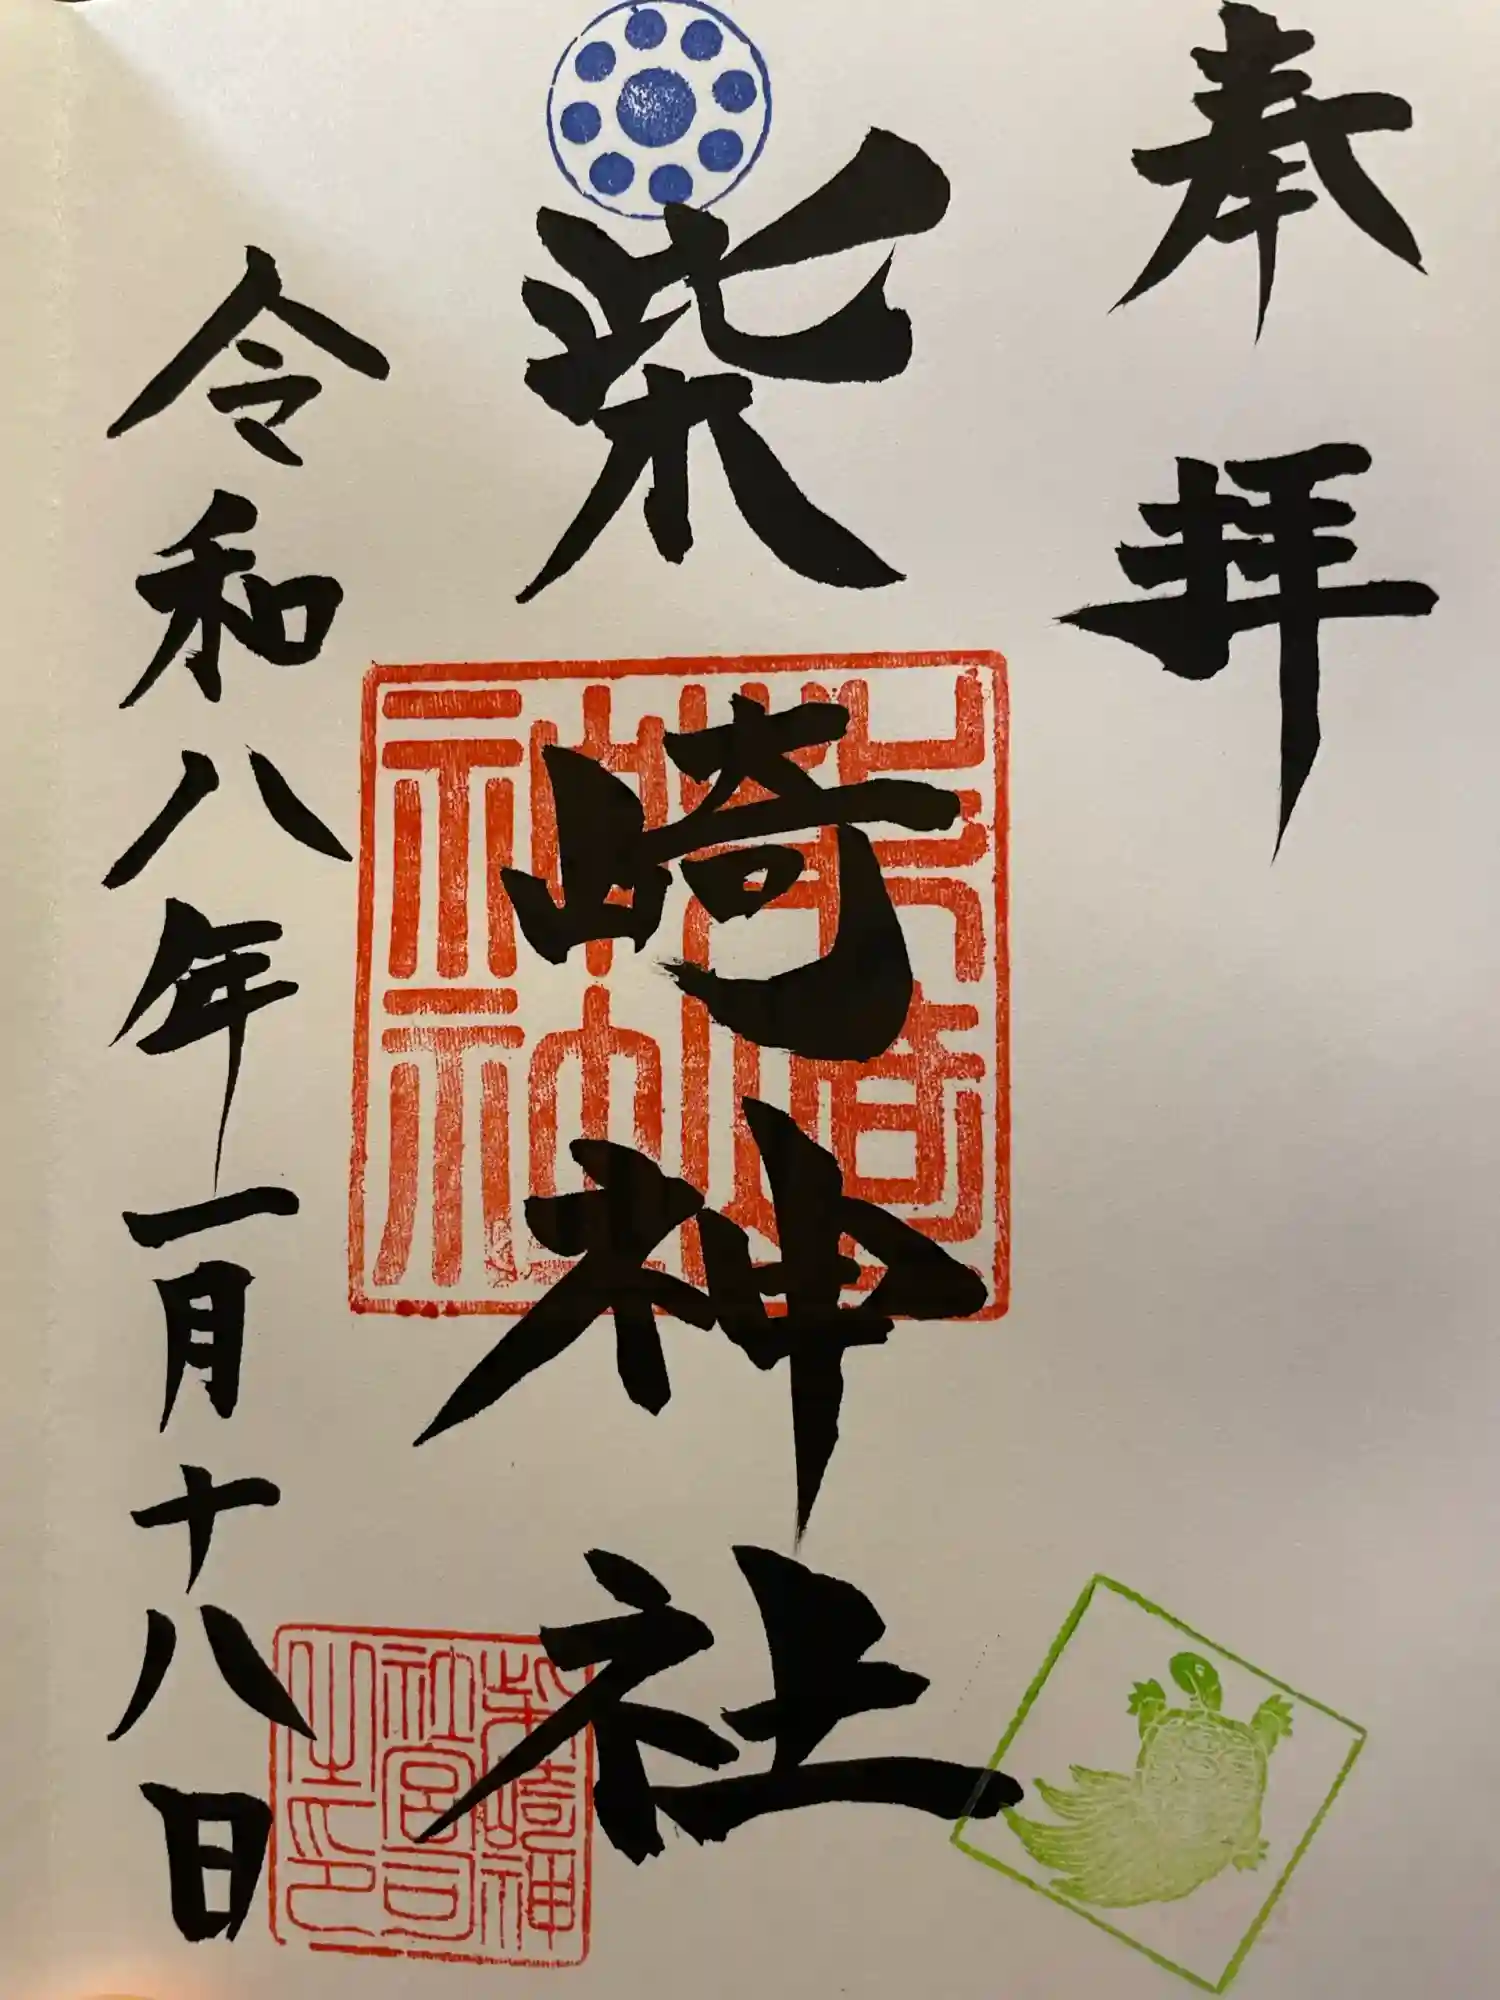 奉拝
柴崎神社
柴崎神社
令和八年一月十八日
柴崎神
社宮司
之印